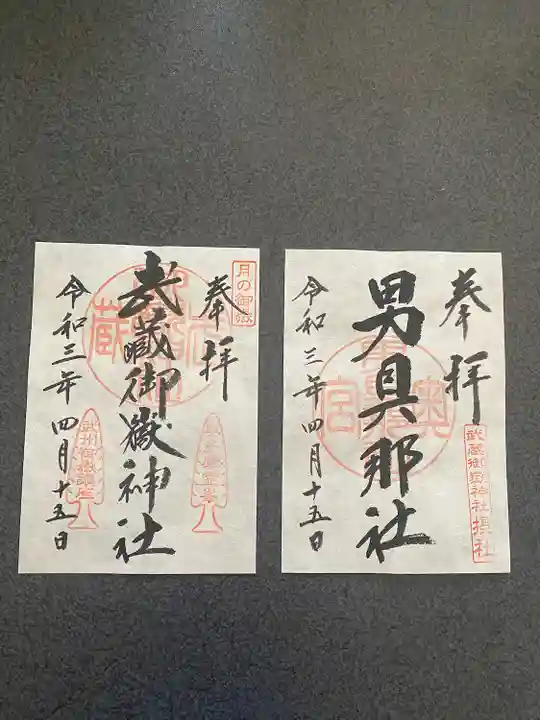 奉拝
男具那社
令和三年四月十五日
武蔵御嶽神社摂社
月の御嶽
奉拝
武蔵御嶽神社
令和三年四月十五日